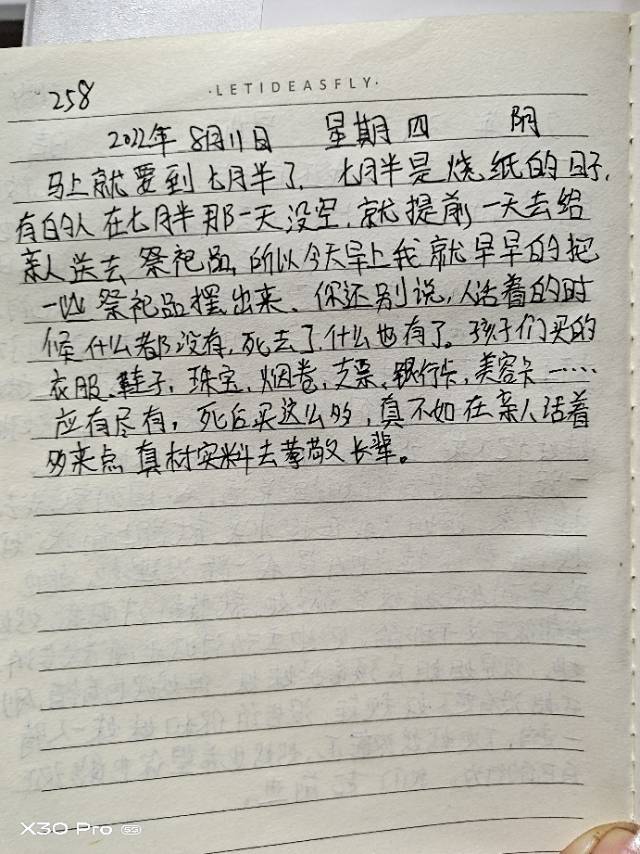 ·LETIDEASFLY·
258
2022年 8月11日 星期四 阴
马上就要到七月半了，七月半是烧纸的日子，
有的人在七月半那一天没空，就提前一天去给
亲人送去祭祀品，所以今天早上我就早早的把
一些祭祀品摆出来、你还别说，人活着的时
候什么都没有，死去了什么也有了。孩子们买的
衣服、鞋子，珠宝，烟卷，支票、银行卡，美容卡……
应有尽有，死后买这么多，真不如在亲人活着
多来点真材实料去孝敬长辈。
X30 Pro 5G